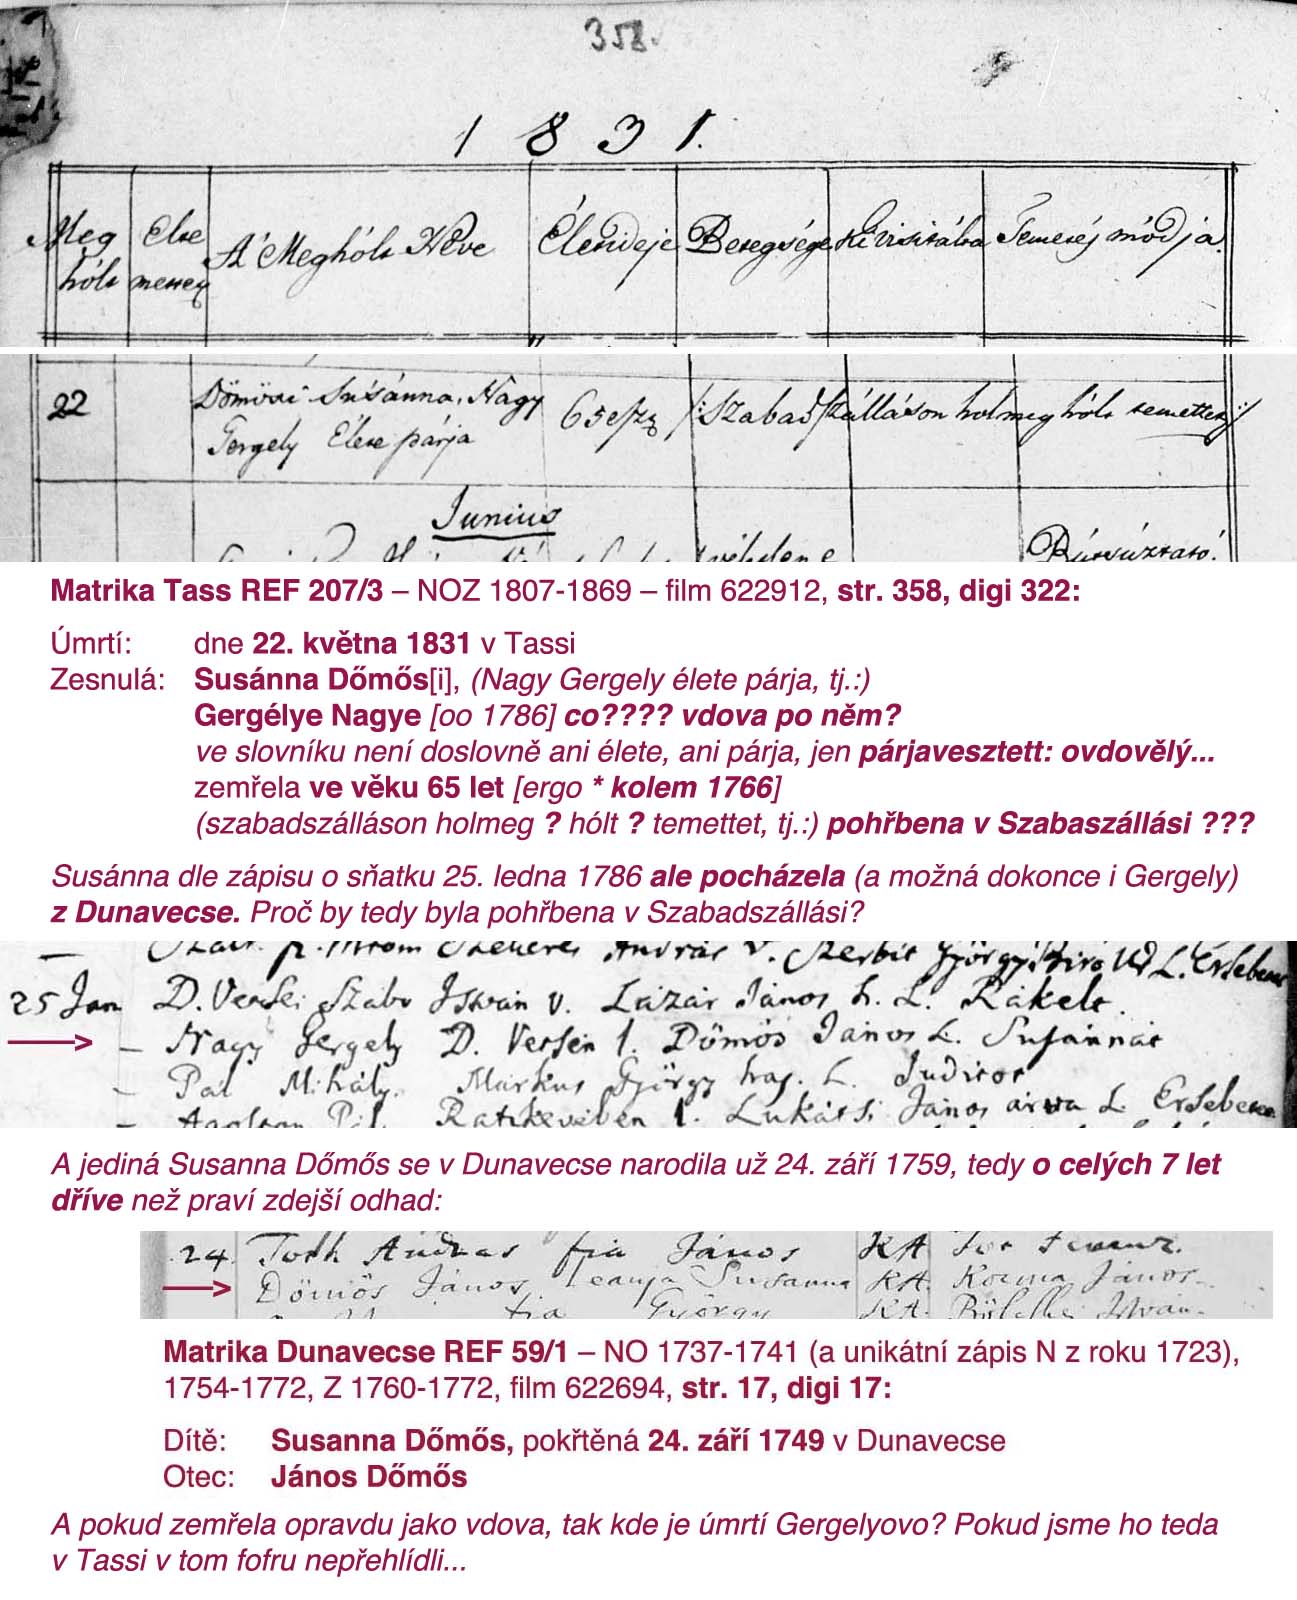 358.
1831.
Meg hólt
Elte metett
A' Meghólt Neve
Életideje
Betegsége
Ki visitálta
Temetés módja.
22
Dömösi Susánna, Nagy
Gergely Élete párja
65esz
/:Szabadszálláson holmeg hólt temettet:/
Junius
Bútsúztató.
Matrika Tass REF 207/3 – NOZ 1807-1869 – film 622912, str. 358, digi 322:
Úmrtí: dne 22. května 1831 v Tassi
Zesnulá: Susánna Dőmős[i], (Nagy Gergely élete párja, tj.:)
Gergélye Nagye [oo 1786] co???? vdova po něm?
ve slovníku není doslovně ani élete, ani párja, jen párjavesztett: ovdovělý...
zemřela ve věku 65 let [ergo * kolem 1766]
(szabadszálláson holmeg ? hólt ? temettet, tj.:) pohřbena v Szabaszállási ???
Susánna dle zápisu o sňatku 25. ledna 1786 ale pocházela (a možná dokonce i Gergely)
z Dunavecse. Proč by tedy byla pohřbena v Szabadszállási?
András v. Szerbit György
25 Jan D. Versei Szabo Istvàn v. Lázár János h. L. Rákelt.
→ – Nagy Gergely D. Versén l. Dömös János L. Susánnát
– Pál Mihály. Márkus György haj. L. Juditot
Ratzkeviben l. Lukátsi János árva L. Ersebetet
A jediná Susanna Dőmős se v Dunavecse narodila už 24. září 1759, tedy o celých 7 let
dříve než praví zdejší odhad:
24. Toth András fia János KA
→ Dömös János Leanya Susanna KA. Kozma János.
fia György KA. István.
Matrika Dunavecse REF 59/1 – NO 1737-1741 (a unikátní zápis N z roku 1723),
1754-1772, Z 1760-1772, film 622694, str. 17, digi 17:
Dítě: Susanna Dőmős, pokřtěná 24. září 1749 v Dunavecse
Otec: János Dőmős
A pokud zemřela opravdu jako vdova, tak kde je úmrtí Gergelyovo? Pokud jsme ho teda
v Tassi v tom fofru nepřehlídli...